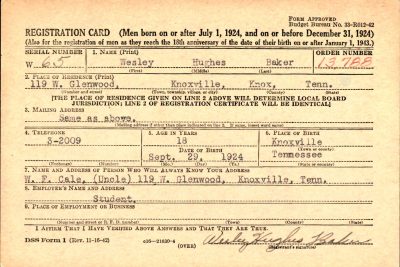 FORM APPROVED
Budget Bureau No. 33-R012-42
REGISTRATION CARD (Men born on or after July 1, 1924, and on or before December 31, 1924)
(Also for the registration of men as they reach the 18th anniversary of the date of their birth on or after January 1, 1943.)
SERIAL NUMBER 1. NAME (Print) ORDER NUMBER
W 65 Wesley Hughes Baker 13788
(First) (Middle) (Last)
2. PLACE OF RESIDENCE (Print)
119 W. Glenwood, Knoxville, Knox, Tenn.
(Number and street) (Town, township, village, or city) (County) (State)
[THE PLACE OF RESIDENCE GIVEN ON LINE 2 ABOVE WILL DETERMINE LOCAL BOARD
JURISDICTION; LINE 2 OF REGISTRATION CERTIFICATE WILL BE IDENTICAL]
3. MAILING ADDRESS
Same as above.
(Mailing address if other than place indicated on line 2. If same, insert word same)
4. TELEPHONE 5. AGE IN YEARS 6. PLACE OF BIRTH
3-2009 18 Knoxville
DATE OF BIRTH (Town or county)
Sept. 29, 1924 Tennessee
(Exchange) (Number) (Mo.) (Day) (Yr.) (State or country)
7. NAME AND ADDRESS OF PERSON WHO WILL ALWAYS KNOW YOUR ADDRESS
W. F. Cale, (Uncle) 119 W. Glenwood, Knoxville, Tenn.
8. EMPLOYER'S NAME AND ADDRESS
Student.
9. PLACE OF EMPLOYMENT OR BUSINESS
(Number and street or R. F. D. number) (Town) (County) (State)
I AFFIRM THAT I HAVE VERIFIED ABOVE ANSWERS AND THAT THEY ARE TRUE.
DSS Form 1 (Rev. 11-16-42) (OVER) Wesley Hughes Baker
(Registrant's signature)